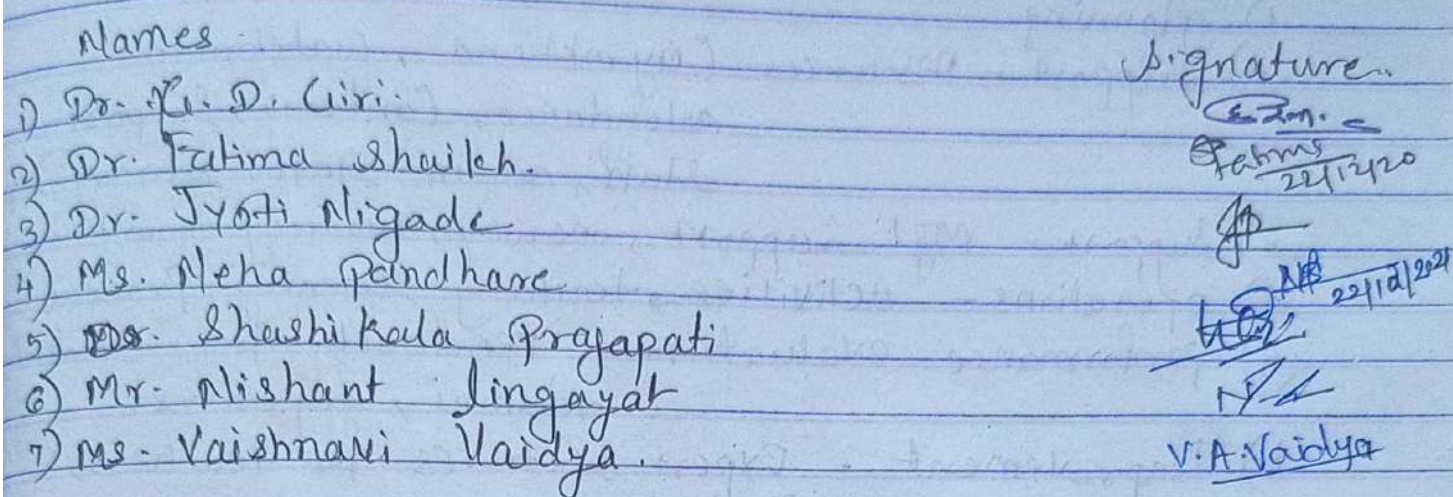 Names
Signature..
1) Dr. G. D. Giri.
2) Dr. Fatima Shaikh.
Fatima
22/12/20
3) Dr. Jyoti Nigade
4) Ms. Neha Pandhare
NB 22/12/2021
5) Dr. Shashikala Prajapati
6) Mr. Nishant lingayat
7) Ms. Vaishnavi Vaidya.
V.A.Vaidya